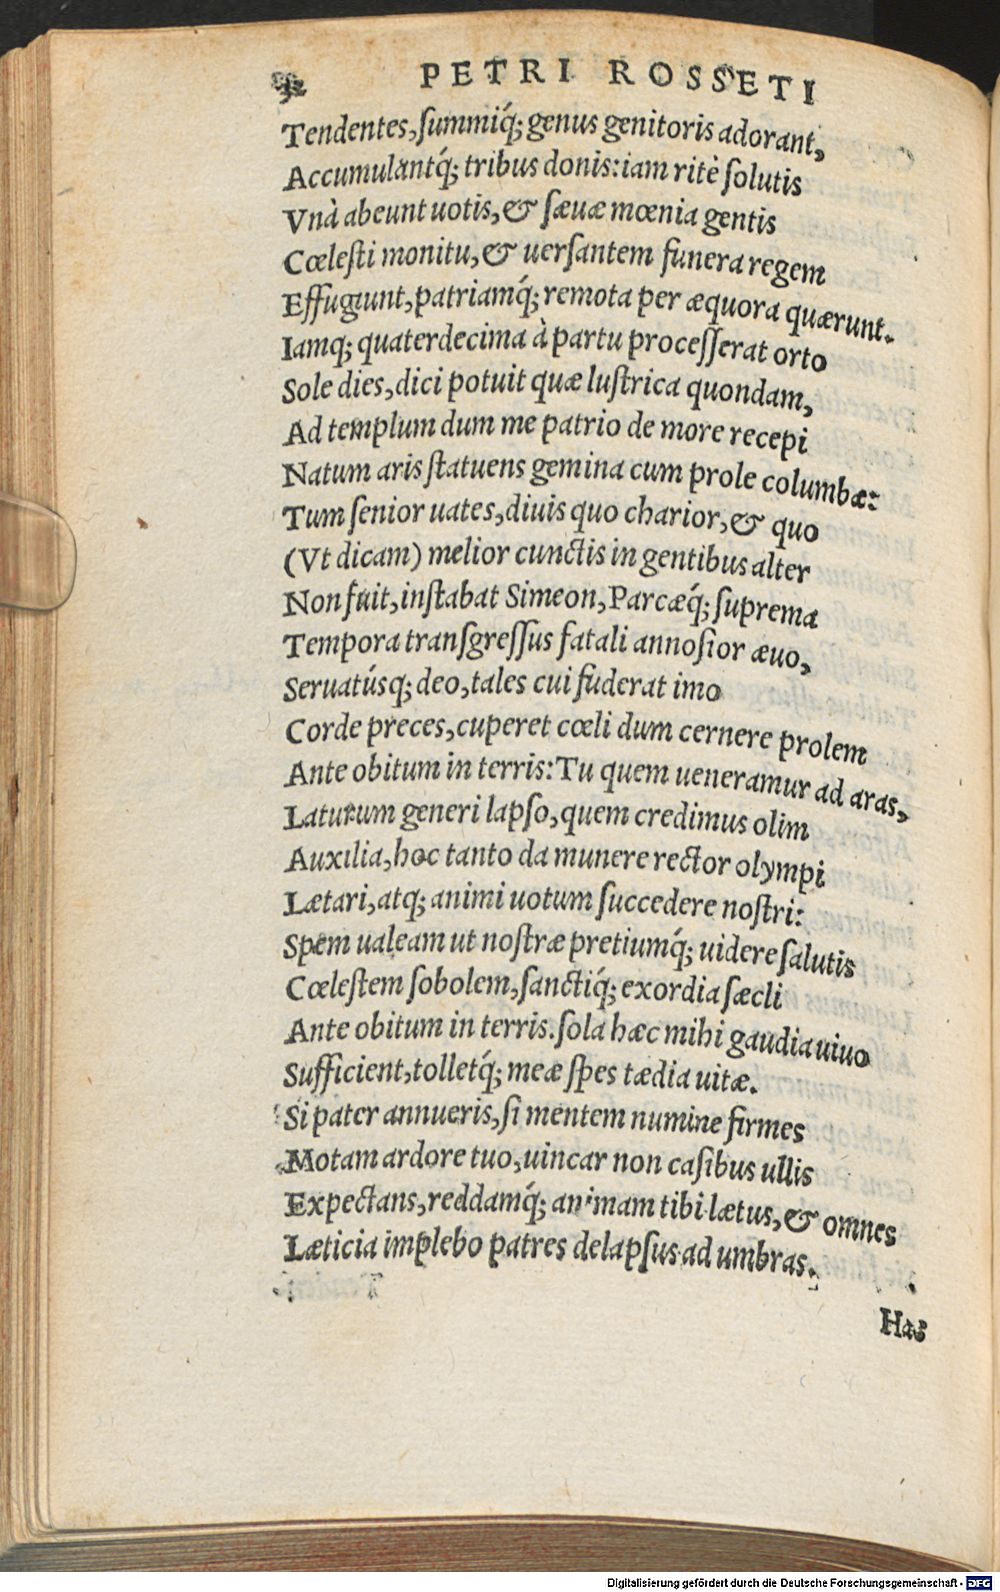 PETRI ROSSETI
Tendentes, ſummiq́; genus genitoris adorant,
Accumulantq́; tribus donis: iam ritè ſolutis
Vnà abeunt uotis, & ſæuæ mœnia gentis
Cœleſti monitu, & uerſantem funera regem
Effugiunt, patriamq́; remota per æquora quærunt.
Iamq; quaterdecima à partu proceſſerat orto
Sole dies, dici potuit quæ luſtrica quondam,
Ad templum dum me patrio de more recepi
Natum aris ſtatuens gemina cum prole columbæ:
Tum ſenior uates, diuis quo charior, & quo
(Vt dicam) melior cunctis in gentibus alter
Non fuit, inſtabat Simeon, Parcæq́; ſuprema
Tempora tranſgreſſus fatali annoſior æuo,
Seruatúsq; deo, tales cui fuderat imo
Corde preces, cuperet cœli dum cernere prolem
Ante obitum in terris: Tu quem ueneramur ad aras,
Laturum generi lapſo, quem credimus olim
Auxilia, hoc tanto da munere rector olympi
Lætari, atq; animi uotum ſuccedere noſtri:
Spem ualeam ut noſtræ pretiumq́; uidere ſalutis
Cœleſtem ſobolem, ſanctiq́; exordia ſæcli
Ante obitum in terris. ſola hæc mihi gaudia uiuo
Sufficient, tolletq́; meæ ſpes tædia uitæ.
Si pater annueris, ſi mentem numine firmes
Motam ardore tuo, uincar non caſibus ullis
Expectans, reddamq́; animam tibi lætus, & omnes
Læticia implebo patres delapſus ad umbras.
Has
Digitalisierung gefördert durch die Deutsche Forschungsgemeinschaft - DFG